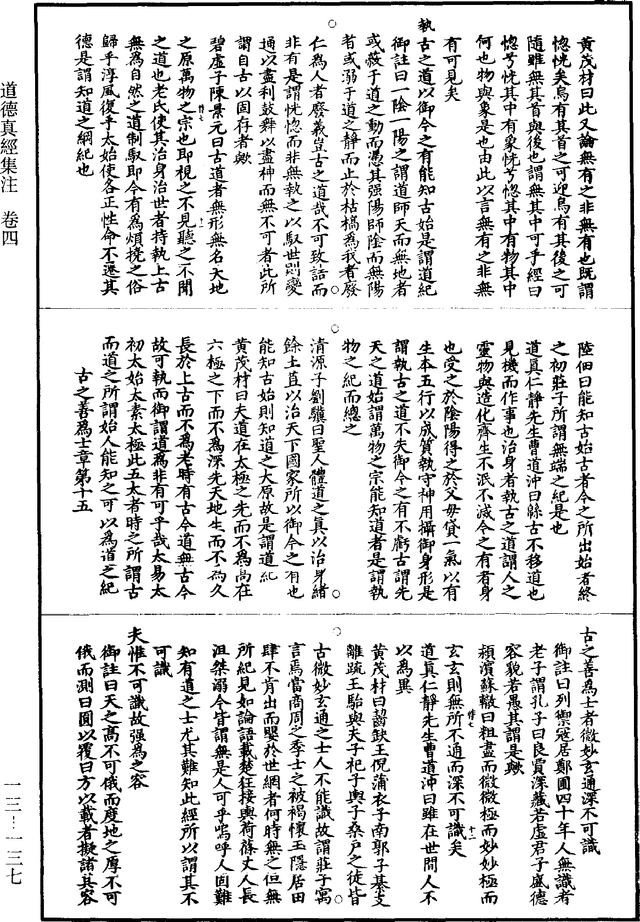 道德真經集注 卷四
黃茂材曰此又論無有之非無有也既謂
惚恍矣烏有其首之可迎烏有其後之可
隨雖無其首與後也謂無其中可乎經曰
惚兮恍其中有象恍兮惚其中有物其中
何也物與象是也由此以言無有之非無
有可見矣
執古之道以御今之有能知古始是謂道紀
御註曰一陰一陽之謂道師天而無地者
或蔽于道之動而憑其強陽師陰而無陽
者或溺于道之靜而止於枯槁為我者廢
仁為人者廢義豈古之道哉不可致詰而
非有是謂恍惚而非無執之以馭世則變
通以盡利鼓舞以盡神而無不可者此所
謂自古以固存者歟
碧虛子陳景元曰古道者無形無名天地
之原萬物之宗也即視之不見聽之不聞
之道也老氏使其治身治世者持執上古
無為自然之道制馭即今有為煩撓之俗
歸乎淳風復乎太始使各正性命不遷其
德是謂知道之綱紀也
陸佃曰能知古始古者今之所出始者終
之初莊子所謂無端之紀是也
道真仁靜先生曹道沖曰緜古不移道也
見機而作事也治身者執古之道謂人之
靈物與造化齊生不派不減今之有者身
也受之於陰陽得之於父母貸一氣以有
生本五行以成質執守神用攝御身形是
謂執古之道不失御今之有不虧古謂先
天之道始謂萬物之宗能知道者是謂執
物之紀而總之
清源子劉驥曰聖人體道之真以治身緒
餘土苴以治天下國家所以御今之有也
能知古始則知道之大原故是謂道紀
黃茂材曰夫道在太極之先而不為高在
六極之下而不為深先天地生而不為久
長於上古而不為老時有古今道無古今
故可執而御謂道為非有可乎哉太易太
初太始太素太極此五太者時之所謂古
而道之所謂始人能知之可以為道之紀
古之善為士章第十五
古之善為士者微妙玄通深不可識
御註曰列禦寇居鄭圃四十年人無識者
老子謂孔子曰良賈深藏若虛君子盛德
容貌若愚其謂是歟
潁濱蘇轍曰粗盡而微微極而妙妙極而
玄玄則無所不通而深不可識矣
道真仁靜先生曹道沖曰雖在世間人不
以為異
黃茂材曰齧缺王倪蒲衣子南郭子綦支
離疏王駘與夫子祀子輿子桑戶之徒皆
古微妙玄通之士人不能識故謂莊子寓
言焉當商周之季士之被褐懷玉隱居田
肆不肯出而嬰於世網者何時無之但無
所紀見如論語載楚狂接輿荷蓧丈人長
沮桀溺今皆謂無是人可乎嗚呼人固難
知有道之士尤其難知此經所以謂其不
可識
夫惟不可識故強為之容
御註曰天之高不可俄而度地之厚不可
俄而測曰圓以覆曰方以載者擬諸其容
一三—一三七